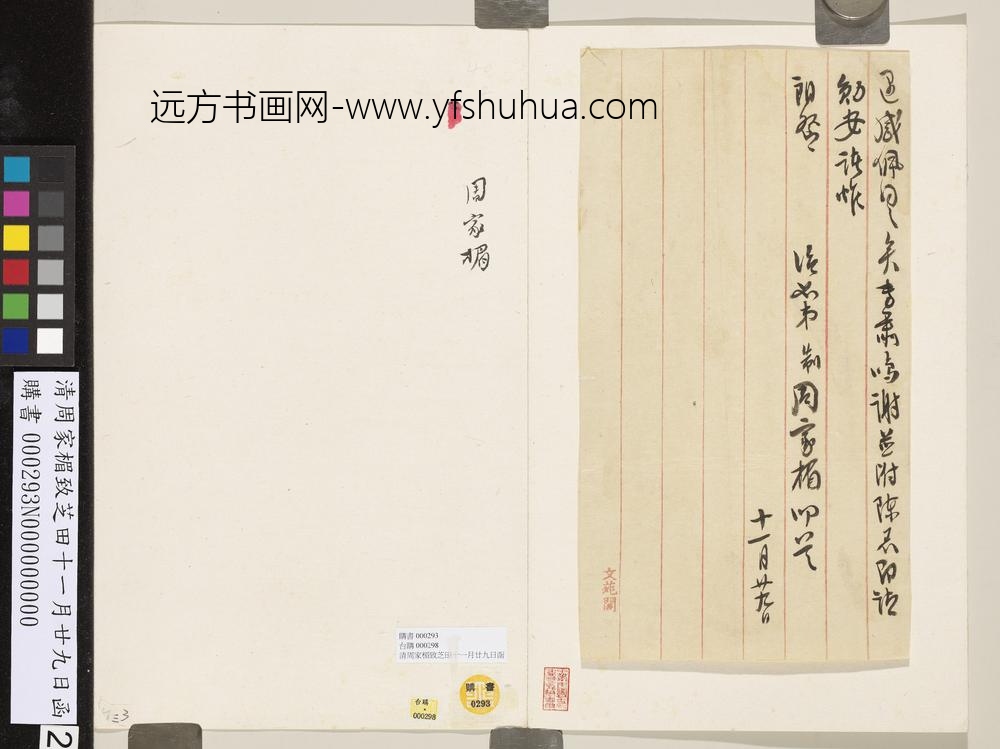 远方书画网-www.yfshuhua.com
感佩 矣専肅鳴謝並附陳 即請
勛安諸惟
朗詧
弟 制周家楣叩
十一月廿九日
文苑閣
周家楣
清周家楣致芝田十一月廿九日函
購書 000293N000000000
2
購書 000293
台購 000298
清周家楣致芝田十一月廿九日函
購書
0293
台購
000298